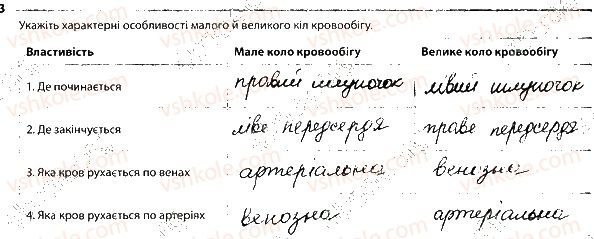 3
Укажіть характерні особливості малого й великого кіл кровообігу.
Властивість Мале коло кровообігу Велике коло кровообігу
1. Де починається правий шлуночок лівий шлуночок
2. Де закінчується ліве передсердя праве передсердя
3. Яка кров рухається по венах артеріальна венозна
4. Яка кров рухається по артеріях венозна артеріальна